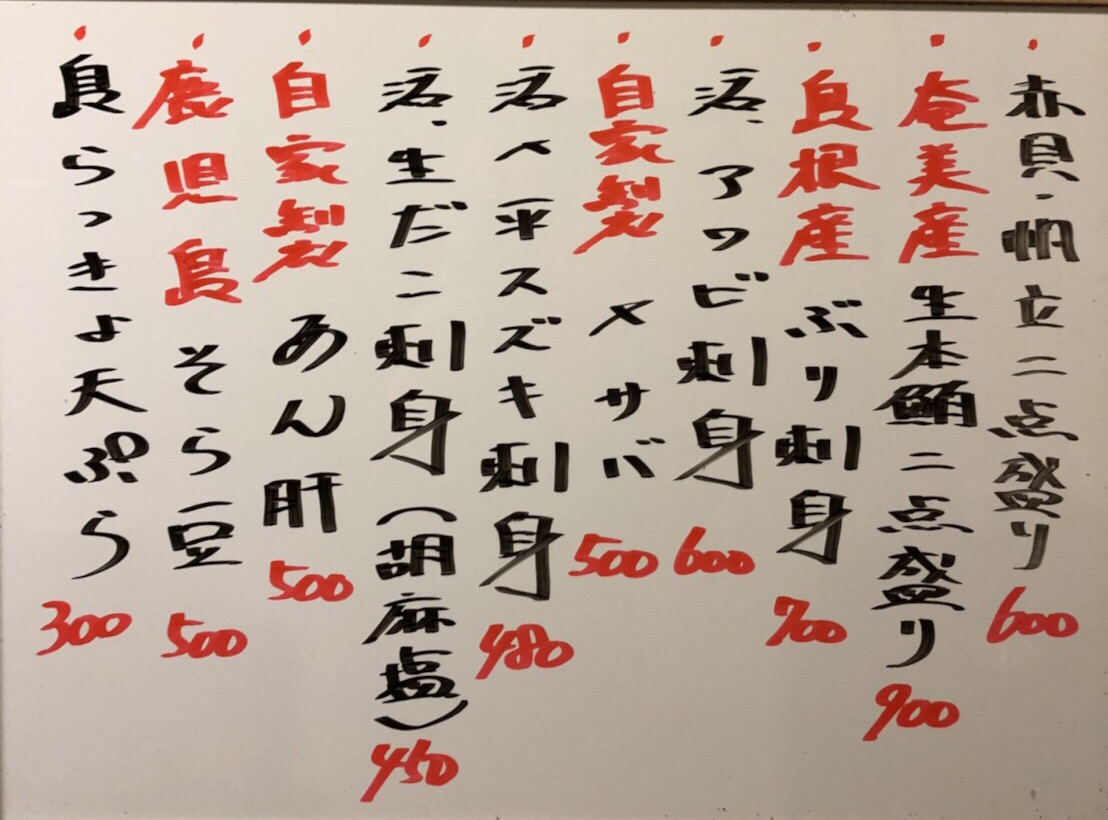 赤貝・帆立二点盛り 600
奄美産 生本鮪二点盛り 900
島根産 ぶり刺身 700
活、アワビ刺身 600
自家製 〆サバ 500
活〆平スズキ刺身 480
活、生だこ刺身(胡麻塩) 450
自家製 あん肝 500
鹿児島 そら豆 500
島らっきょ天ぷら 300